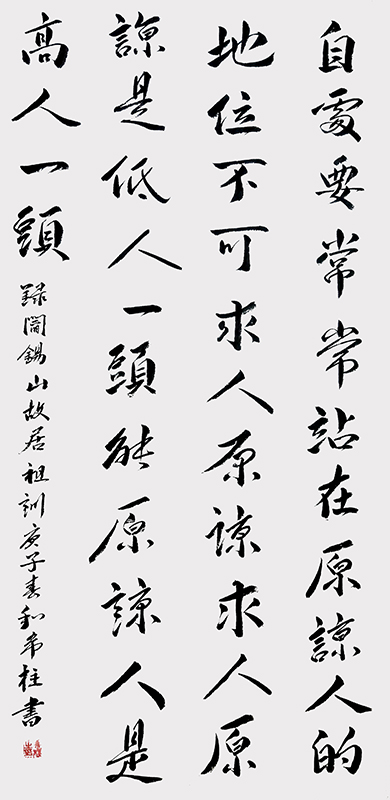 自處要常常站在原諒人的
地位不可求人原諒求人原
諒是低人一頭能原諒人是
高人一頭
録閻錫山故居祖訓庚子春希柱書